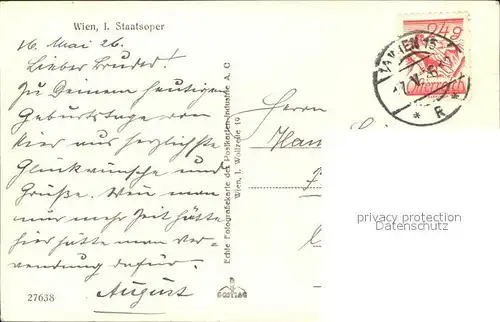 Wien, I. Staatsoper
16. Mai 26.
Lieber Bruder!
Zu Deinem heutigen
Geburtstage von
hier aus herzlichste
Glückwünsche und
Grüße. Wenn man
nur mehr Zeit hätte
hier hätte man Ver-
wendung dafür.
August
27638
Echte Fotografiekarte des Postkarten-Industrie A. G.
Wien, I. Wollzeile 19
POSTIAG
Herrn
WIEN 15
* R *
privacy protection
Datenschutz